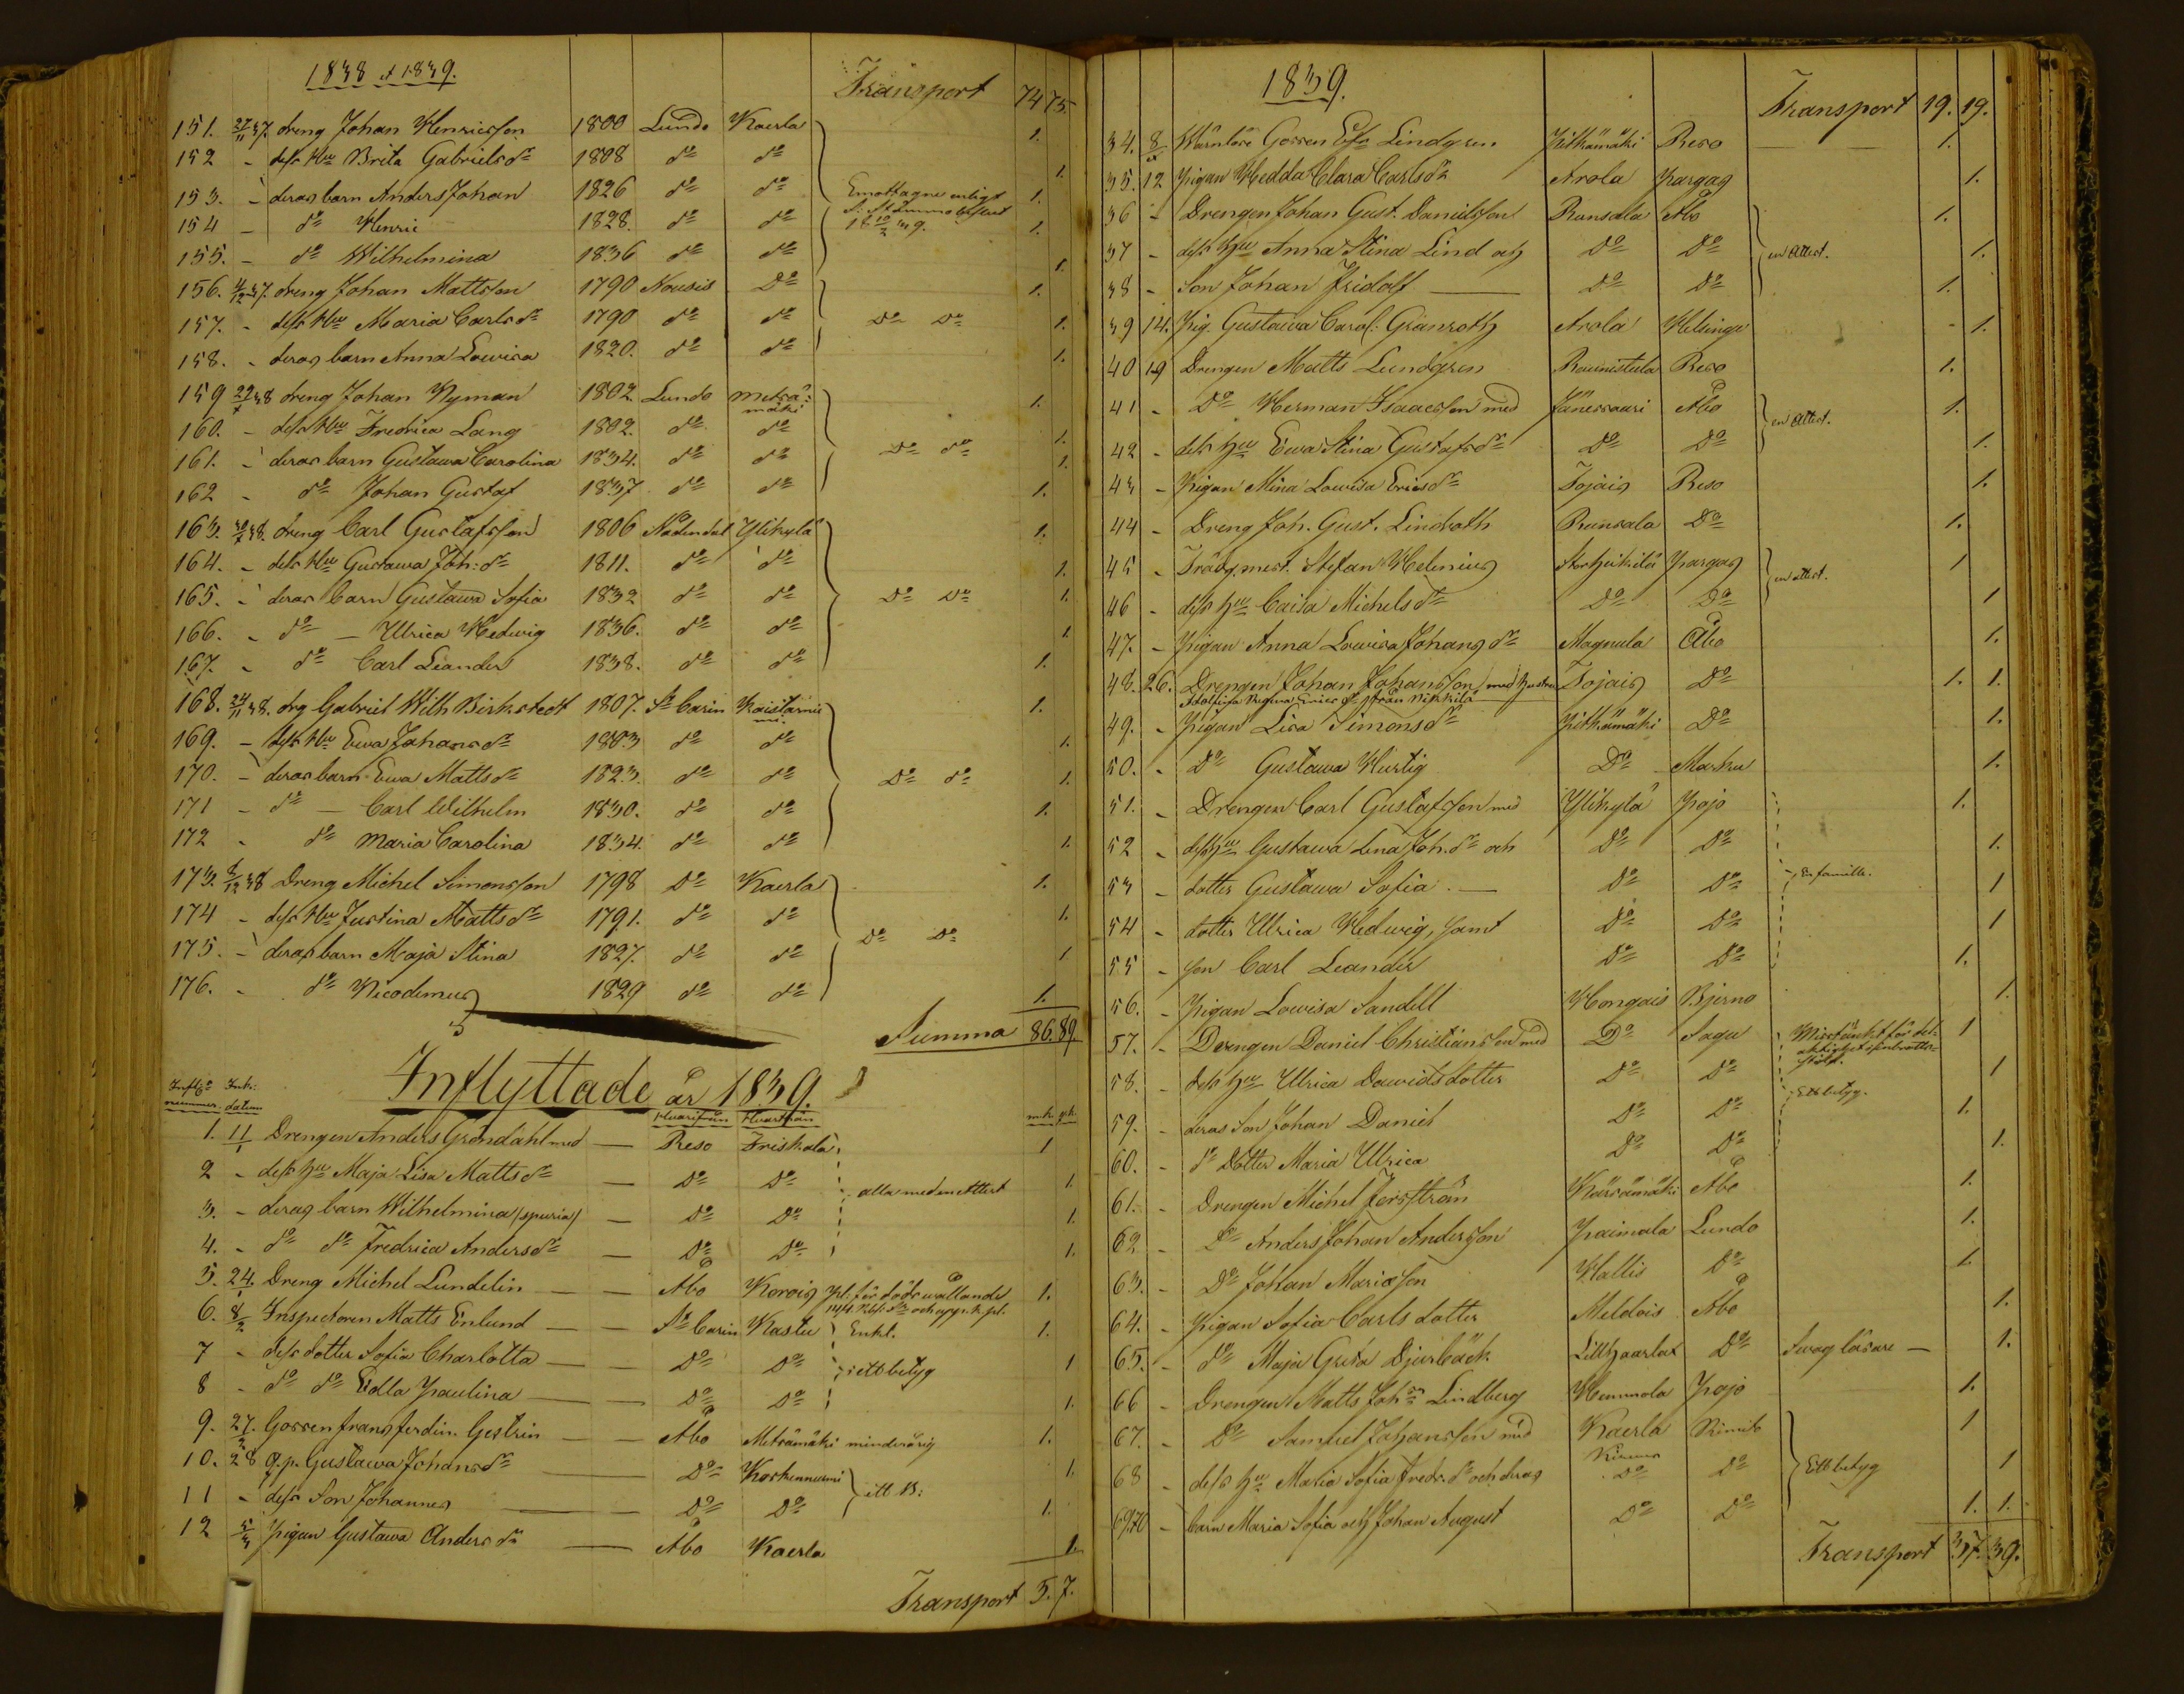 1838 et 1839.
Transport 74 75.
151. 27/11 37. dreng Johan Henricsson 1800 Lundo Kaerla 1.
152 - dess Hu Brita Gabrielsdr 1808 do do 1.
153. - deras barn Anders Johan 1826 do do Emottagne enligt 1.
154 - do Henric 1828. do do 1.
18 10/2 39.
155. - do Wilhelmina 1836 do do 1.
156. 4/12 37. dreng Johan Mattsson 1790 Nousis Do 1.
157. - dess Hu Maria Carlsdr 1790 do do Do Do 1.
158. - deras barn Anna Lowisa 1820. do do 1.
159 22/x 38 dreng Johan Nyman 1802 Lundo Metsä=mäki 1.
160. - dess Hu Fredrica Lang 1802. do do 1.
161. - deras barn Gustawa Carolina 1834. do do Do do 1.
162 - do Johan Gustaf 1837 do do 1.
163. 30/x 38. dreng Carl Gustafsson 1806 Nådendal Ylikylä 1.
164. - dess Hu Gustawa Joh:dr 1811. do do 1.
165. - deras barn Gustawa Sofia 1832 do do Do Do 1.
166. - do - Ulrica Hedwig 1836. do do 1.
167. - do Carl Leander 1838. do do 1.
168. 24/11 38. drg Gabriel Wilh Birkstedt 1807. St Carin Kaistarnie=mi. 1.
169. - dess Hu Ewa Johansdr 1803 do do 1.
170. - deras barn Ewa Mattsdr 1823. do do Do do 1.
171 - do - Carl Wilhelm 1830. do do 1.
172 - do Maria Carolina 1834. do do 1.
173. 6/12 38 Dreng Michel Simonsson 1798 Do Kaerla 1.
174 - dess Hu Justina Mattsdr 1791. do do 1.
175. - deras barn Maja Stina 1827. do do Do Do 1
176. - do Nicodemus 1829 do do 1.
Summa 86. 89.
Inflyttade år 1839.
nummer. datum Hvarifrån Hvarthän mk. qk.
1. 11/1 Drengen Anders Gröndahl med — Reso Friskala 1
2 - dess hu Maja Lisa Mattsdr — Do Do alla med en Attest 1.
3. - deras barn Wilhelmina (spuria) — Do Do 1.
4. - do do Fredrica Andersdr — Do Do 1.
5. 24/1 Dreng Michel Lundelin — Åbo Korois 1.
6. 8/2 Inspectoren Matts Enlund — St Carin Kastu Enkl. 1.
7 - dess dotter Sofia Charlotta — Do Do ett betyg 1
8 - do do Edla Paulina — Do Do 1.
9. 27/2 Gossen Frans Ferdin. Gestrin — Åbo Metsämäki minderårig 1.
10. 28 q.p. Gustawa Johansdr — Do Koskennurmi 1.
11 - dess Son Johannes — Do Do ett B: 1.
12 5/3 Pigan Gustawa Andersdr — Åbo Kaerla 1.
Transport 5. 7.
1839.
Transport 19. 19.
34. 8/x Wärnlöse Gossen Lindgren Pitkämäki Reso 1.
35. 12 Pigan Hedda Clara Carlsdr Arola Pargas 1.
36 - Drengen Johan Gust. Danielsson Runsala Åbo 1.
37 - dess hu Anna Stina Lind och Do Do en Attest. 1.
38 - Son Johan Fridolf — Do Do 1.
39 14. Pig. Gustawa Carol: Granroth Arola Wellinge 1.
40 19 Drengen Matts Lundgren Raunistula Reso 1.
41 - Do Herman Isaacsson med Jänessaari Åbo en Attest. 1.
42 - dess hu Ewa Stina Gustafsdr Do Do 1.
43 - Pigan Mina Lowisa Ericsdr Tojais Reso 1.
44 - Dreng Joh. Gust. Lindroth Runsala Do 1.
45 - Trädg.mest. Stefan Helenius Storheikilä Pargas en attest. 1
46 - dess hu Caisa Michelsdr Do Do 1
47. - Pigan Anna Lowisa Johansdr Magnula Åbo 1.
48. 26. Drengen Johan Johansson med hustru Tojais Do 1. 1.
Adolfina Regina Ericsdr från Nikkilä
49. - Pigan Lisa Simonsdr Pitkämäki Do 1.
50. - Do Gustawa Hurtig Do Masku 1.
51. - Drengen Carl Gustafsson med Ylikylä Pojo 1.
52 - dess hu Gustawa Lena Joh.dr och Do Do 1.
53 - dotter Gustawa Sofia. — Do Do En famille. 1
54 - dotter Ulrica Hedwig, samt Do Do 1
55 - son Carl Leander Do Do 1.
56. - Pigan Lowisa Sandell Hongais Bjerno 1.
57. - Drengen Daniel Christiansson med Do Sagu Misstänkt för del=aktighet i 1
58. - dess hu Ulrica Dawidsdotter Do Do Ett betyg. 1
59. - deras Son Johan Daniel Do Do 1.
60. - do Dotter Maria Ulrica Do Do 1.
61. - Drengen Michel Forsström Kärsämäki Åbo 1.
62 - Do Anders Johan Andersson Paimala Lundo 1.
63. - Do Johan Mariasson Hallis Do 1.
64. - Pigan Sofia Carlsdotter Meldois Åbo 1.
65. - do Maja Greta Djurbäck Lillhaarlax Do Swag läsare — 1.
66 - Drengen Matts Johsn Lindberg Hemmola Pojo 1.
67. - Do Samuel Johansson med Kaerla Rimito 1
68 - dess hu Maria Sofia Fredr.dr och deras Do Do Ett betyg 1
69.70 - barn Maria Sofia och Johan August Do Do 1. 1.
Transport 37. 39.